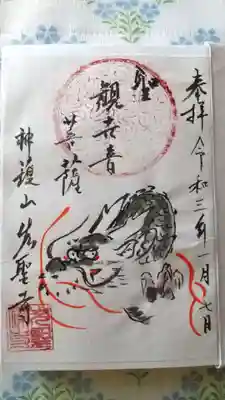 奉拝 令和三年一月七日
聖
観世音
菩薩
神護山 先聖寺